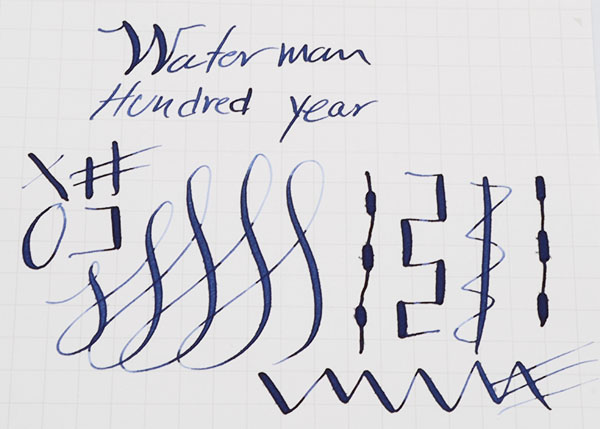 Waterman
Hundred year